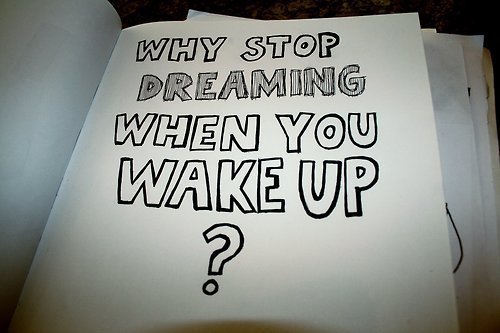 WHY STOP
DREAMING
WHEN YOU
WAKE UP
?